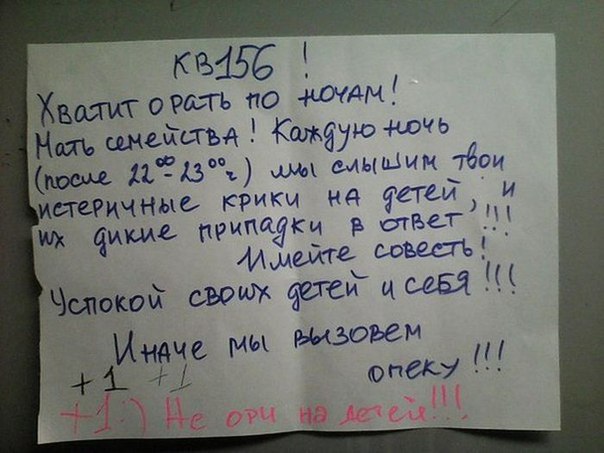 КВ156 !
Хватит орать по ночам!
Мать семейства! Каждую ночь
(после 22⁰⁰-23⁰⁰ч) мы слышим твои
истеричные крики на детей, и
их дикие припадки в ответ!!!
Имейте совесть!
Успокой своих детей и себя!!!
Иначе мы вызовем
опеку!!!
+1 +1
+1:) Не ори на детей!!!